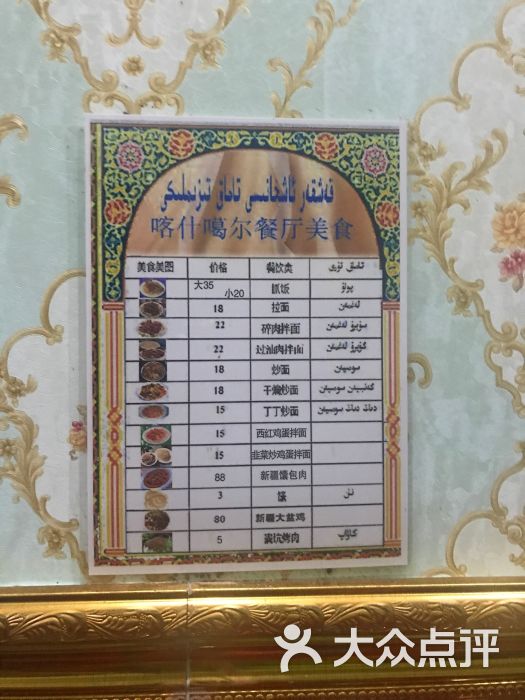 قەشقەر ئاشخانىسى تاماق تىزىملىكى
喀什噶尔餐厅美食
美食美图 价格 餐饮类 تاماق تۈرى
大35 小20 抓饭 پولۇ
18 拉面 لەغمەن
22 碎肉拌面 سۈيۈ لەغمەن
22 过油肉拌面 گۆيرۇ لەغمەن
18 炒面 سوسمەن
18 干煸炒面 گەنبىيەن سوسمەن
15 丁丁炒面 دىڭ دىڭ سوسمەن
15 西红鸡蛋拌面
15 韭菜炒鸡蛋拌面
88 新疆馕包肉
3 馕 نان
80 新疆大盆鸡
5 馕坑烤肉 كاۋاپ
大众点评